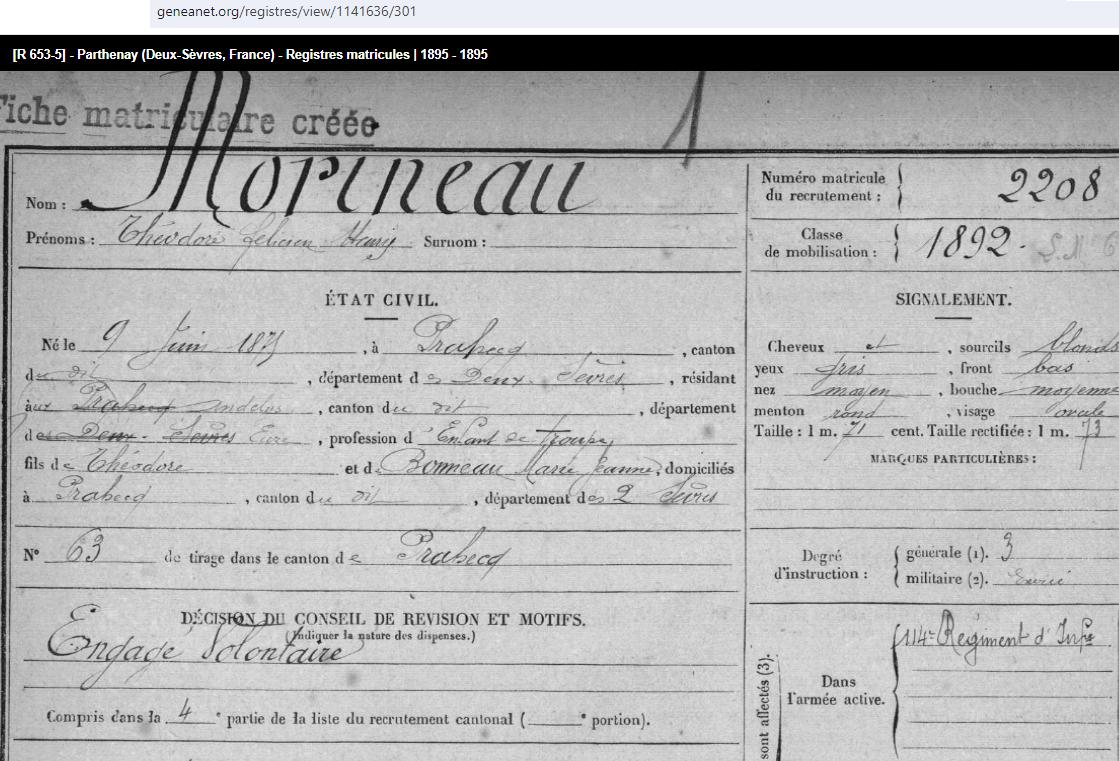 geneanet.org/registres/view/1141636/301
[R 653-5] - Parthenay (Deux-Sèvres, France) - Registres matricules | 1895 - 1895
Fiche matriculaire créée
1
Nom : Morineau
Prénoms : Théodore Félicien Henry Surnom :
ÉTAT CIVIL.
Né le 9 Juin 1875, à Prahecq, canton
du dit, département des Deux-Sèvres, résidant
aux Prahecq Andelys, canton du dit, département
des Deux-Sèvres Eure, profession d'Enfant de troupe,
fils de Théodore et de Bonneau Marie Jeanne, domiciliés
à Prahecq, canton du dit, département des 2 Sèvres
N° 63 de tirage dans le canton de Prahecq
DÉCISION DU CONSEIL DE REVISION ET MOTIFS.
(Indiquer la nature des dispenses.)
Engagé Volontaire
Compris dans la 4e partie de la liste du recrutement cantonal ( e portion).
Numéro matricule
du recrutement : 2208
Classe
de mobilisation : 1892.
SIGNALEMENT.
Cheveux et, sourcils blonds
yeux gris, front bas
nez moyen, bouche moyenne
menton rond, visage ovale
Taille : 1 m. 71 cent. Taille rectifiée : 1 m. 73
MARQUES PARTICULIÈRES :
Degré
d'instruction :
générale (1). 3
militaire (2).
sont affectés (3).
Dans
l'armée active.
114e Régiment d'Infie